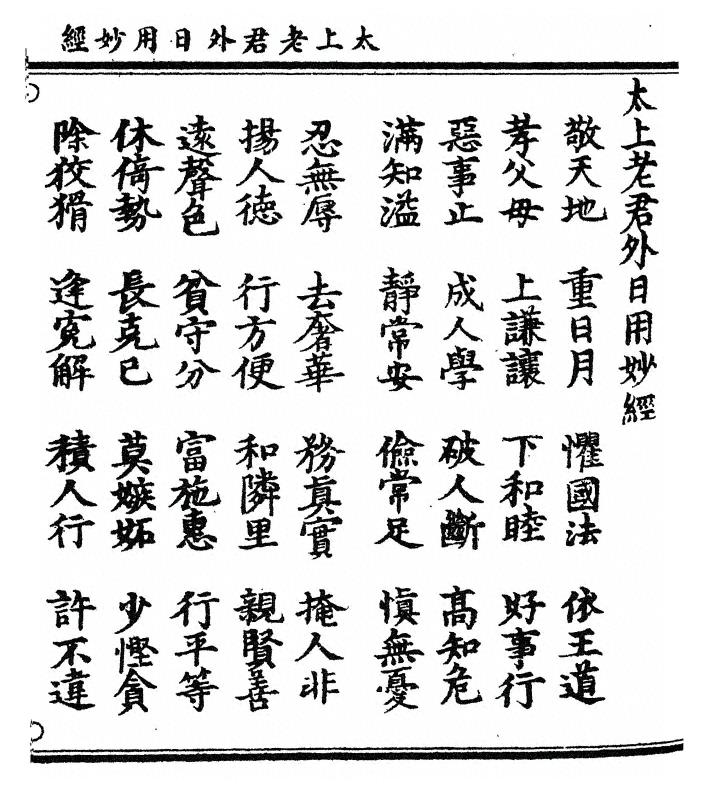 太上老君外日用妙經
太上老君外日用妙經
敬天地 重日月 懼國法 依王道
孝父母 上謙讓 下和睦 好事行
惡事止 成人學 破人斷 高知危
滿知溢 靜常安 儉常足 愼無憂
忍無辱 去奢華 務眞實 掩人非
揚人德 行方便 和隣里 親賢善
遠聲色 貧守分 富施惠 行平等
休倚勢 長克己 莫嫉妬 少慳貪
除狡猾 逢寃解 積人行 許不違